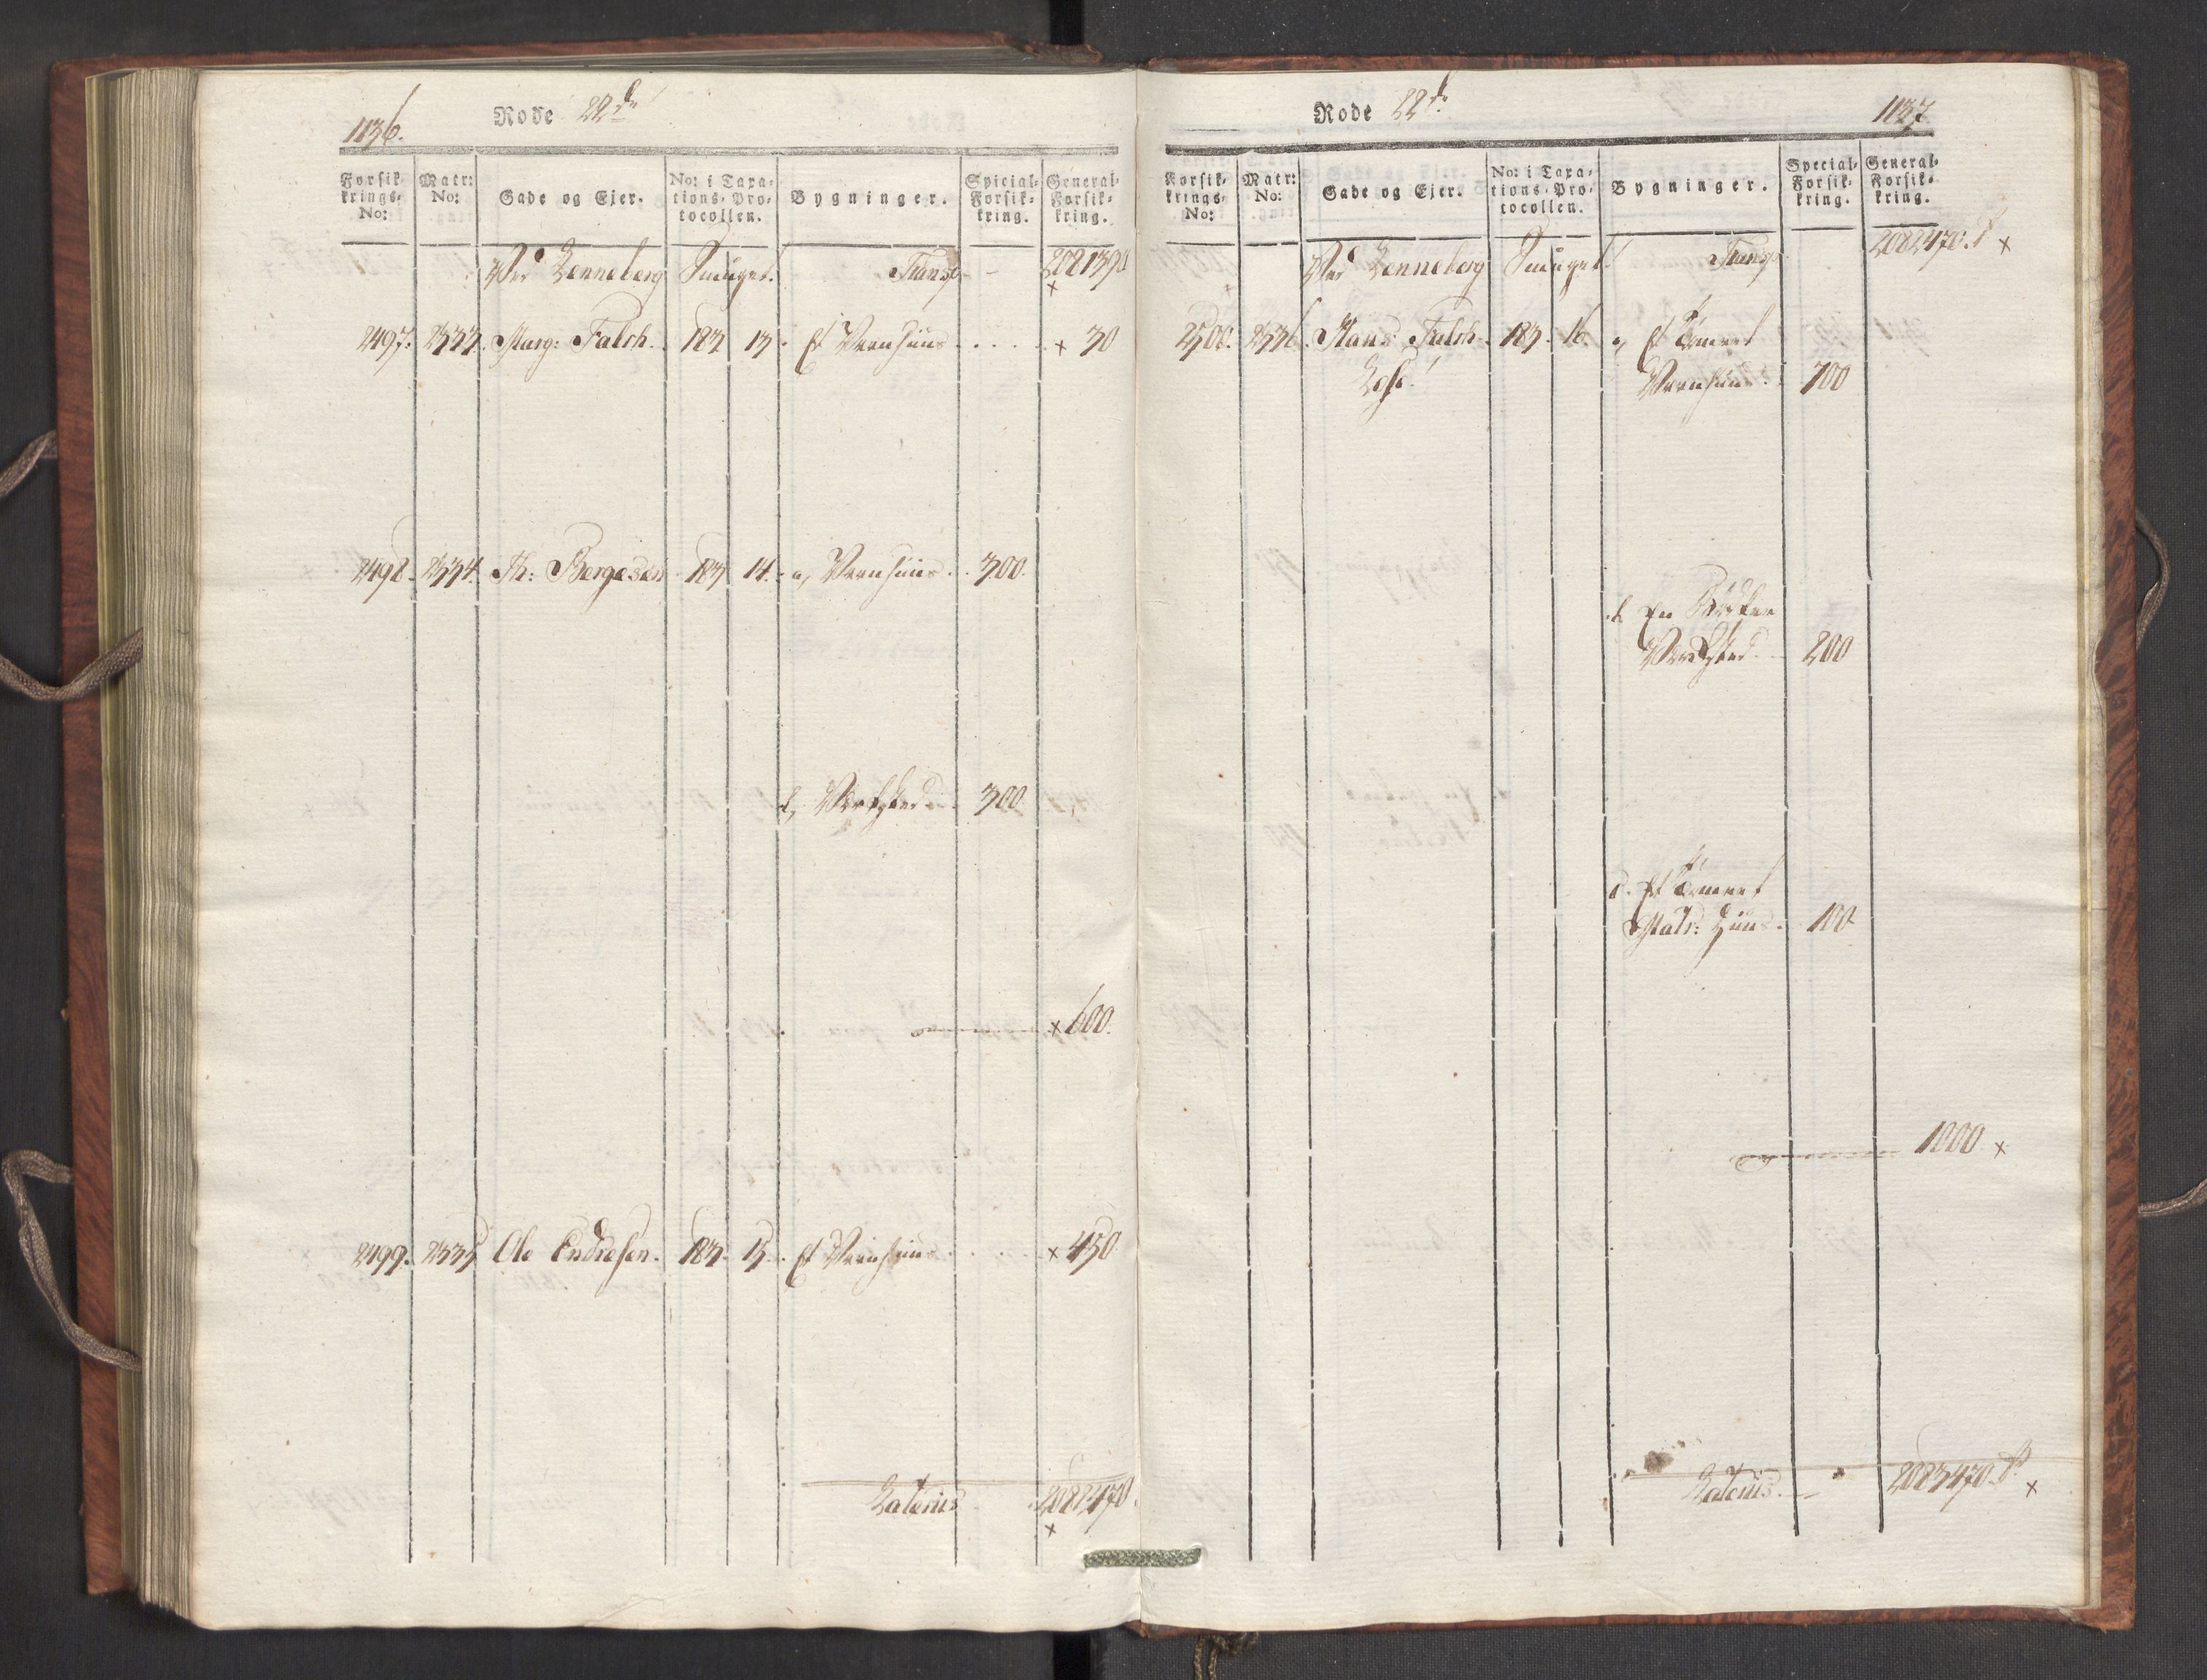 1136.
Rode 22de
Forsik-
krings-
No:
Matr:
No:
Gade og Ejer.
No: i Taxa-
tions-Pro-
tocollen.
Bygninger.
Spicial-
Forsik-
kring.
General-
Forsik-
kring.
Ved Henneberg Smuget. Transp 2081390
x
2497. 2333. Marg: Falch. 183 13. Et Vaanhuus . . . . x 30
2498. 2334. Th: Bergesen 183 14. a, Vaanhuus . . 300.
b, Værksted 300.
x 600.
2499. 2335 Ole Endresen. 183. 15. Et Vaanhuus . . . x 450
Laterus 2082470.
x
Rode 22de
1137.
Forsik-
krings-
No:
Matr:
No:
Gade og Ejer.
No: i Taxa-
tions-Pro-
tocollen.
Bygninger.
Special-
Forsik-
kring.
General-
Forsik-
kring.
Ved Henneberg Smuget. Transp 2082470. x
2500. 2336. Hans Falch 183. 16. a, Et
Vaanhuus. 700
b. En Bødker
Værksted. 200
Et
Matr: Huus. 100
1000 x
Laterus. 2083470. x